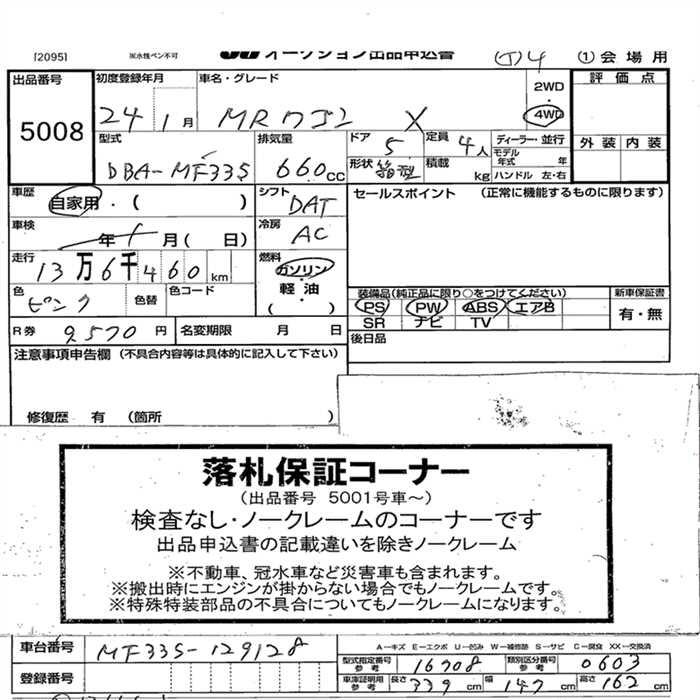 [2095]
※水性ペン不可
オークション出品申込書
① 会場用
出品番号
5008
初度登録年月
24 1月
車名・グレード
MRワゴン X
2WD
4WD
評価点
外装 内装
型式
DBA-MF33S
排気量
660cc
ドア
5
定員
4人
ディーラー・並行
モデル年式 年
形状
箱型
積載
kg
ハンドル 左・右
車歴
自家用・( )
シフト
DAT
セールスポイント (正常に機能するものに限ります)
車検
年 月( 日)
冷房
AC
走行
13万6千460km
燃料
ガソリン・
軽油・
( )
色
ピンク
色替
色コード
装備品(純正品に限り○をつけてください)
PS PW ABS エアB
SR ナビ TV
新車保証書
有・無
R券
9570円
名変期限 月 日
後日品
注意事項申告欄 (不具合内容等は具体的に記入して下さい)
修復歴 有 (箇所 )
落札保証コーナー
(出品番号 5001号車〜)
検査なし・ノークレームのコーナーです
出品申込書の記載違いを除きノークレーム
※不動車、冠水車など災害車も含まれます。
※搬出時にエンジンが掛からない場合でもノークレームです。
※特殊特装部品の不具合についてもノークレームになります。
車台番号
MF33S-129128
A−キズ E−エクボ U−凹み W−補修跡 S−サビ C−腐食 XX−交換済
型式指定番号参考
16708
類別区分番号参考
0603
登録番号
車庫証明用参考
長さ 339cm 幅 147cm 高さ 162cm